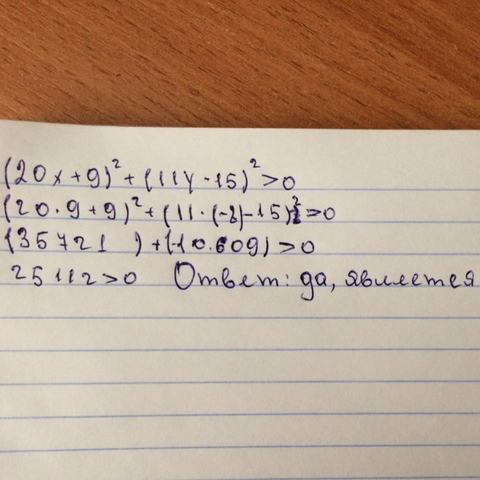 (20x+9)²+(11y-15)²>0
(20·9+9)²+(11·(-8)-15)²>0
(35721 )+(-10.609)>0
25112>0 Ответ: да, является